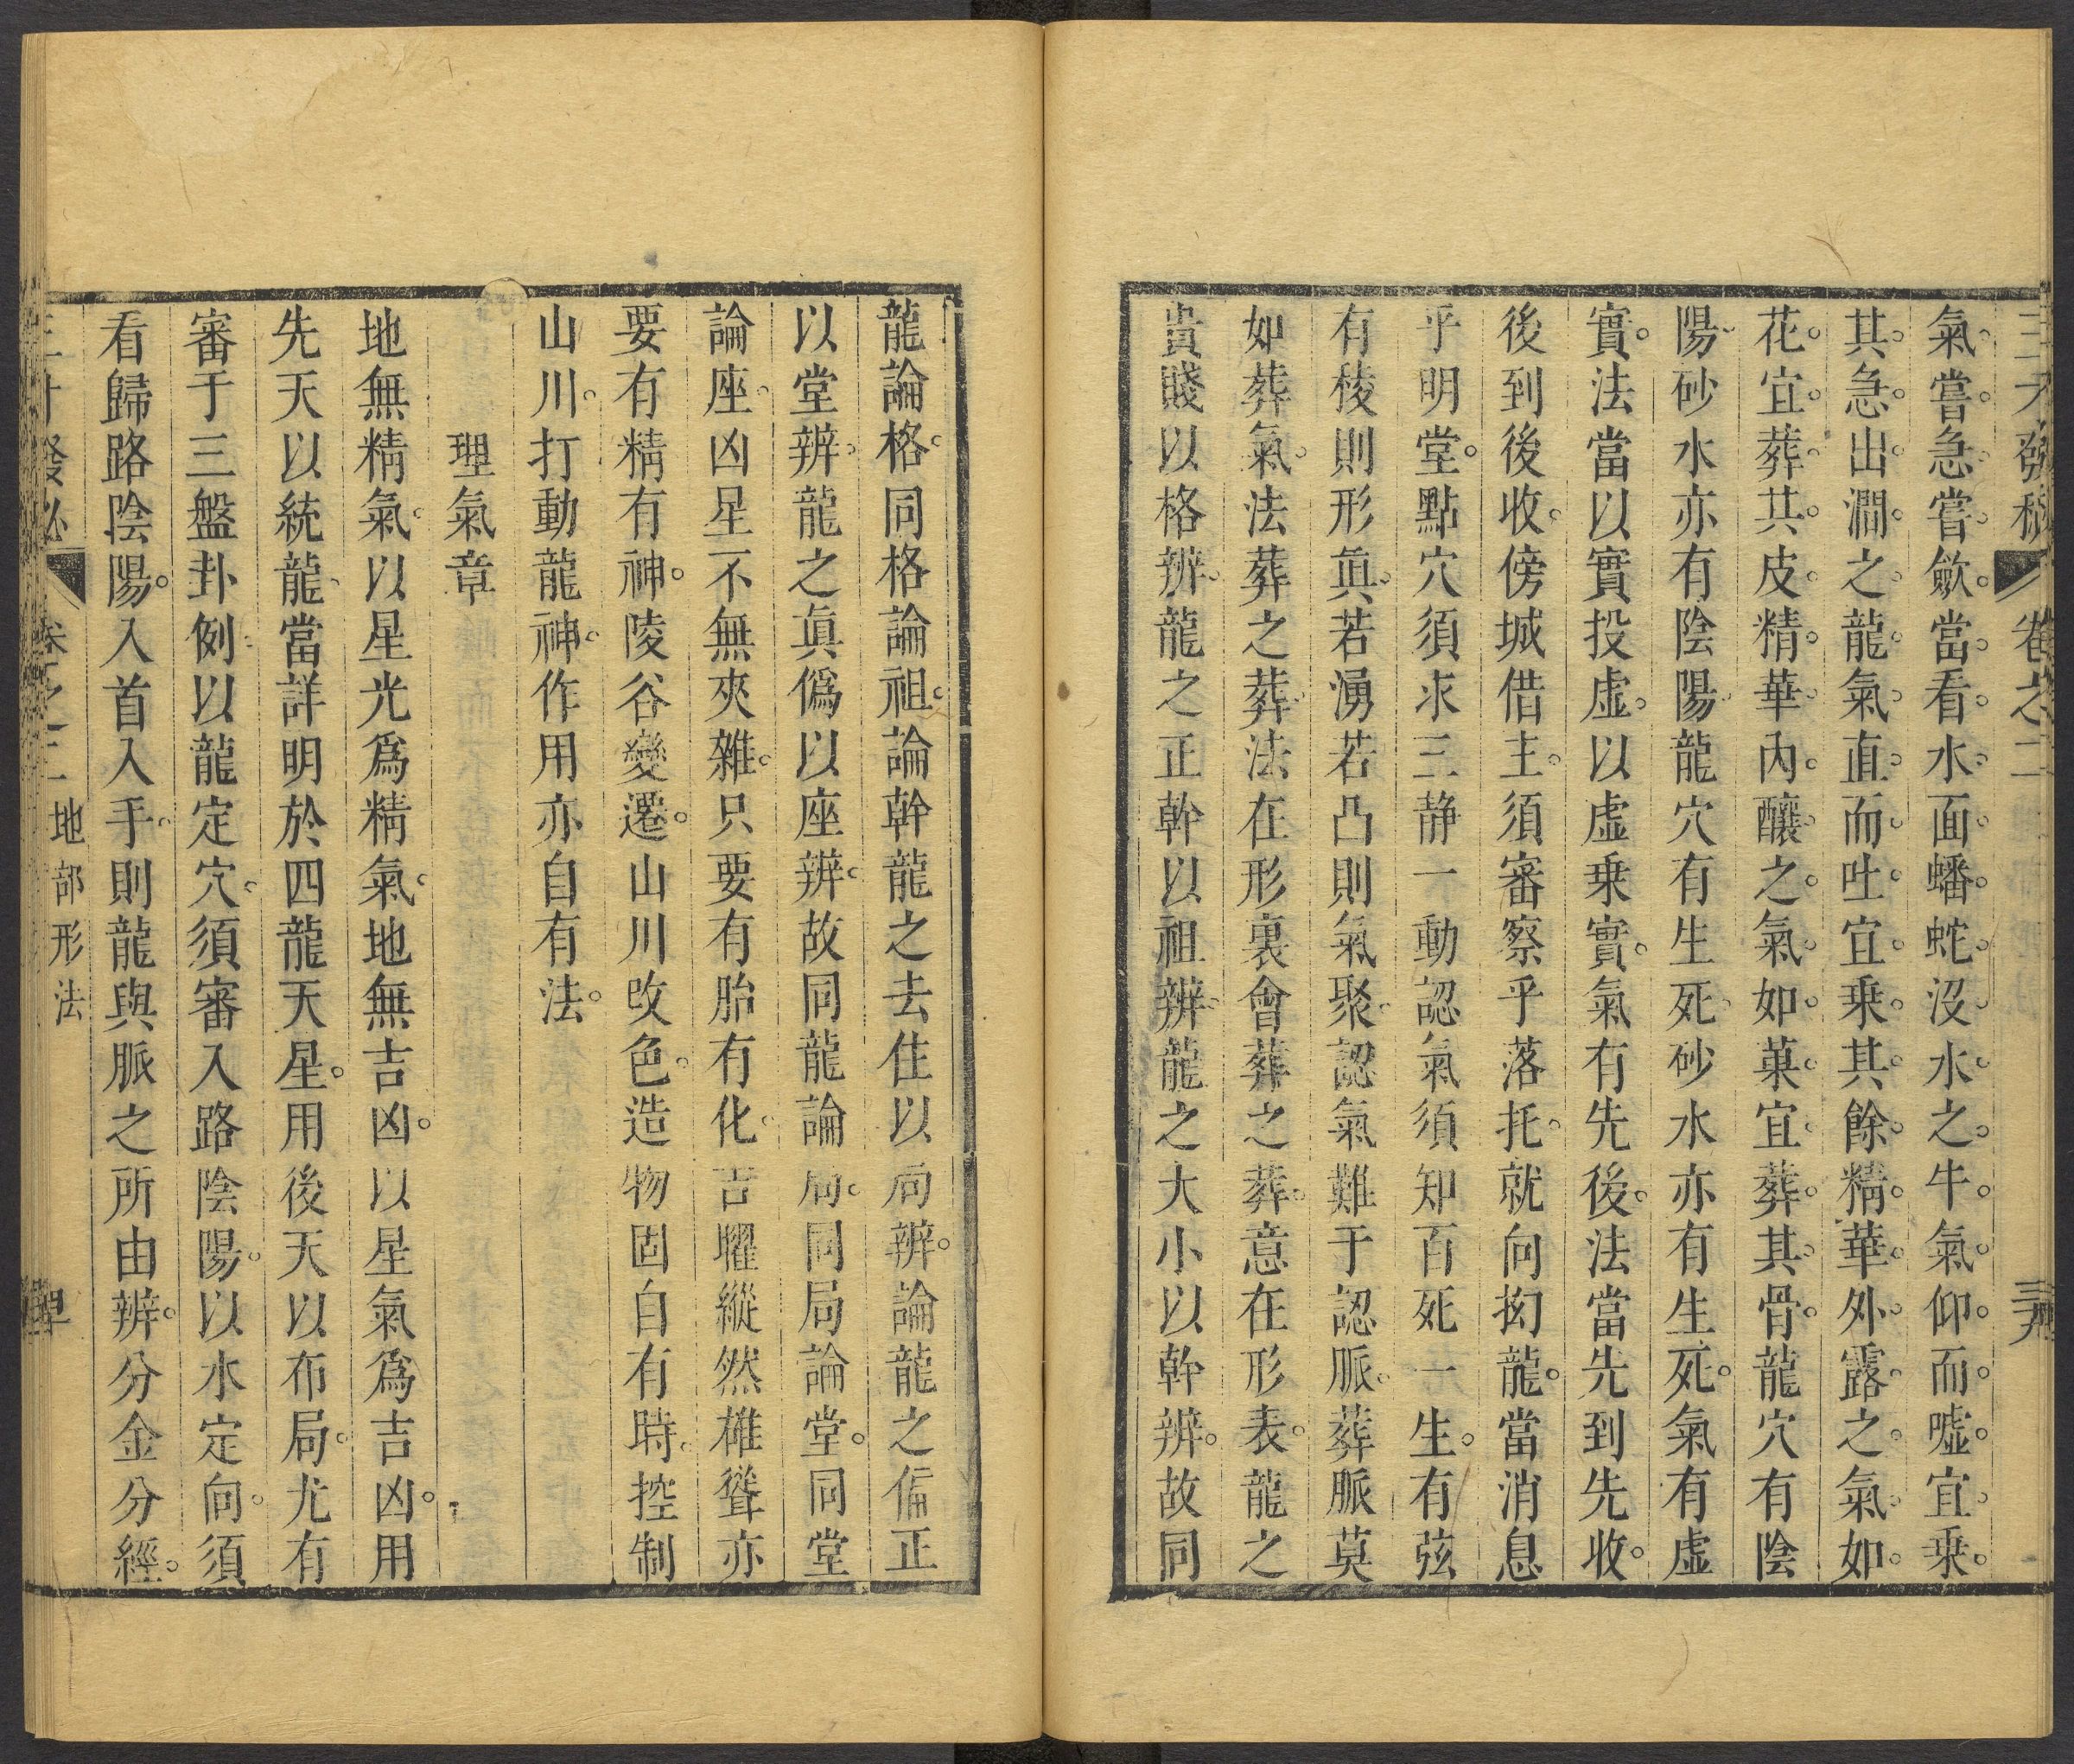 三才發秘 卷之二 三九
氣嘗急嘗歛當看水面蟠蛇沒水之牛氣仰而噓宜乗
其急出澗之龍氣直而吐宜乗其餘精華外露之氣如
花宜葬其皮精華內釀之氣如菓宜葬其骨龍穴有陰
陽砂水亦有陰陽龍穴有生死砂水亦有生死氣有虛
實法當以實投虛以虛乗實氣有先後法當先到先收
後到後收傍城借主須審察乎落托就向拗龍當消息
乎明堂點穴須求三静一動認氣須知百死一生有弦
有稜則形眞若湧若凸則氣聚認氣難于認脈葬脈莫
如葬氣法葬之葬法在形裏會葬之葬意在形表龍之
貴賤以格辨龍之正幹以祖辨龍之大小以幹辨故同
龍論格同格論祖論幹龍之去住以局辨論龍之偏正
以堂辨龍之眞僞以座辨故同龍論局同局論堂同堂
論座凶星不無夾雜只要有胎有化吉曜縱然雄聳亦
要有精有神陵谷變遷山川攺色造物固自有時控制
山川打動龍神作用亦自有法
理氣章
地無精氣以星光爲精氣地無吉凶以星氣爲吉凶用
先天以統龍當詳明於四龍天星用後天以布局尤有
審于三盤卦例以龍定穴須審入路陰陽以水定向須
看歸路陰陽入首入手則龍與脈之所由辨分金分經
卷之二 地部形法